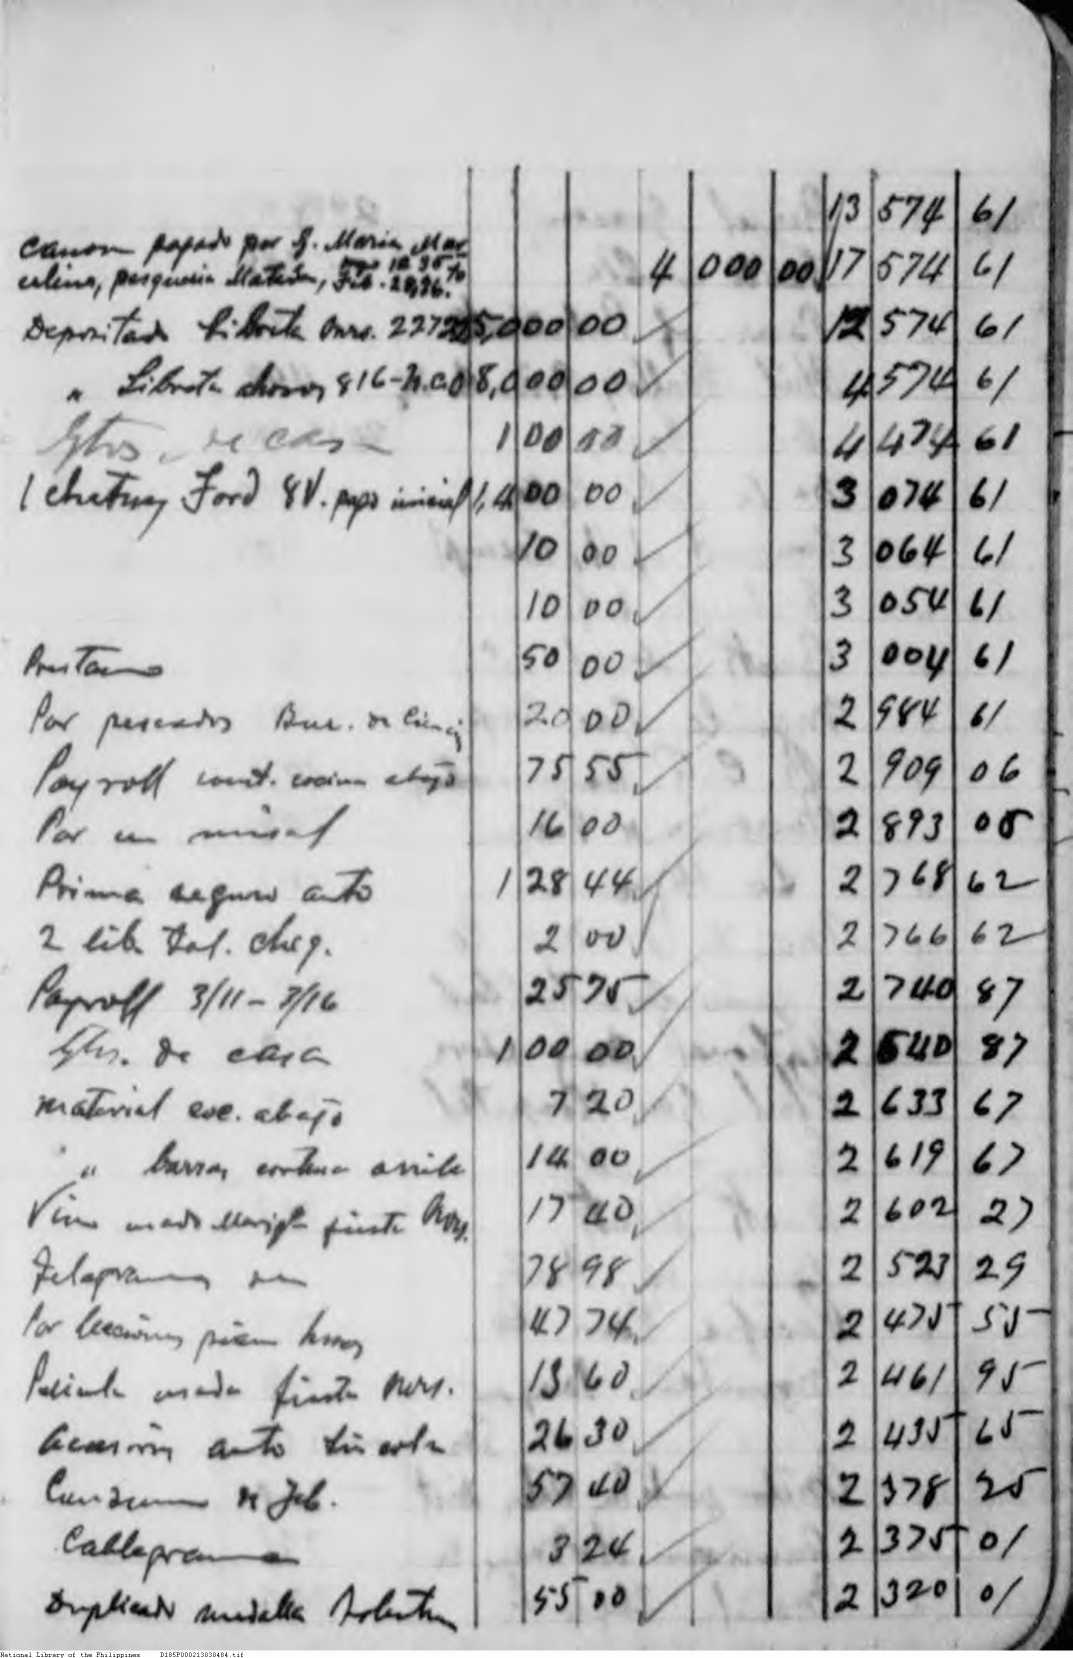 13 574 61
Canon pagado por G. Maria Mar-
celino, pesqueria Feb. 28, 36. 4 000 00 17 574 61
Depositado Libreta 5,000 00 12 574 61
" Libreta ahorros 816-N.C.O 8,000 00 4 574 61
Gtos. de casa 100 00 4 474 61
1 chatway Ford 8V. pago inicial 1,400 00 3 074 61
10 00 3 064 61
10 00 3 054 61
Prestamo 50 00 3 004 61
Por pescados Bur. de 20 00 2 984 61
Payroll cont. cocina abajo 75 55 2 909 06
Por un misal 16 00 2 893 06
Prima seguro auto 128 44 2 768 62
2 lib. tal. cheq. 2 00 2 766 62
Payroll 3/11 - 3/16 25 75 2 740 87
Gtos. de casa 100 00 2 640 87
material esc. abajo 7 20 2 633 67
" barras cortina arriba 14 00 2 619 67
Vino usado fiesta 17 40 2 602 27
Telegramas 78 98 2 523 29
Por lecciones 47 74 2 475 55
Pelicula usada fiesta 13 60 2 461 95
Accesorios auto Lincoln 26 30 2 435 65
Consumo de Feb. 57 40 2 378 25
Cablegrama 3 24 2 375 01
Duplicado medalla 55 00 2 320 01
National Library of the Philippines D185P000213838484.tif